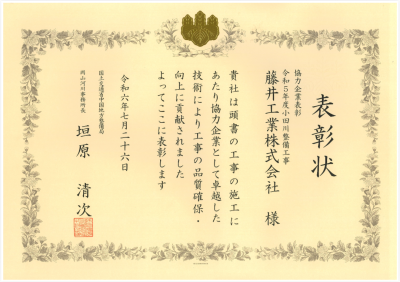 表彰状
協力企業表彰
令和５年度小田川整備工事
藤井工業株式会社 様
貴社は頭書の工事の施工に
あたり協力企業として卓越した
技術により工事の品質確保・
向上に貢献されました
よってここに表彰します
令和六年七月二十六日
国土交通省中国地方整備局
岡山河川事務所長
垣原 清次